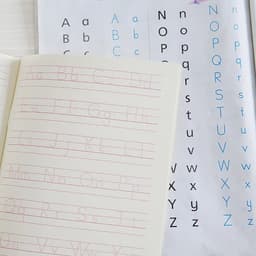 A a
B b
C c
A a
B b
C c
N n
O o
P p
q
r
s
t
u
v
w
X x
Y y
Z z
N n
O o
P p
Q q
R r
S s
T t
U u
V v
W w
X x
Y y
Z z
Aa Bb Cc Dd
Ee Ff Gg Hh
Ii Jj Kk Ll
Mm Nn Oo Pp
Qq Rr Ss Tt
Uu Vv Ww Xx